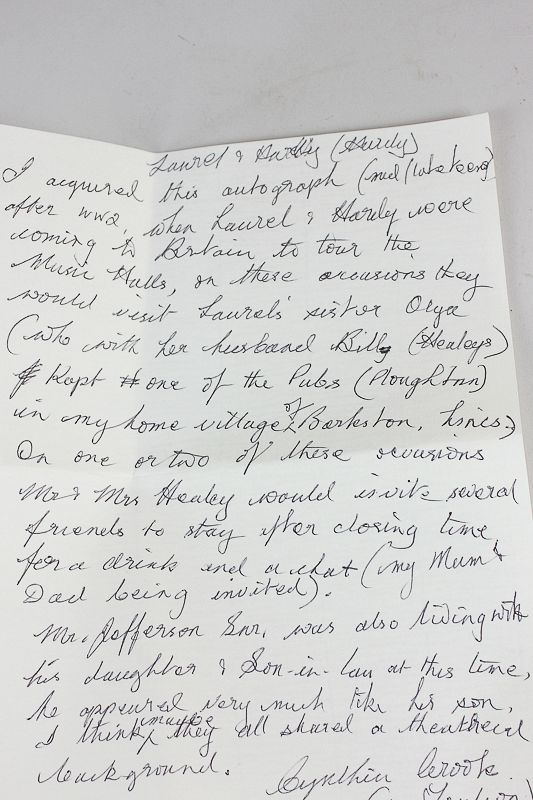 Laurel & Hardy (Hardy)
I acquired this autograph
after WW2, when Laurel & Hardy were
coming to Britain to tour the
Music Halls, on these occasions they
would visit Laurels' sister Olga
(who with her husband Billy (Healeys)
Kept one of the Pubs (Plough Inn)
in my home village of Barkston, Lincs.)
On one or two of these occasions
Mr & Mrs Healey would invite several
friends to stay after closing time
for a drink and a chat (my Mum &
Dad being invited).
Mr. Jefferson Snr. was also living with
his daughter & Son-in-law at this time,
he appeared very much like his son,
I think maybe they all shared a theatrical
background.
Cynthia Crook.